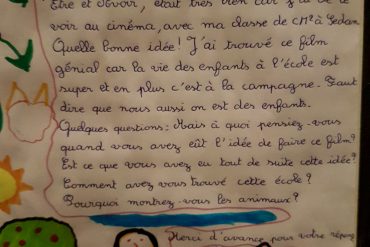 Etre et Devoir, était très bien car j'ai
voir au cinéma, avec ma classe de CM² à Sedan
Quelle bonne idée! J'ai trouvé ce film
génial car la vie des enfants à l'école est
super et en plus c'est à la campagne. Faut
dire que nous aussi on est des enfants.
Quelques questions: Mais à quoi pensiez-vous
quand vous avez eût l'idée de faire ce film?
Est ce que vous avez eu tout de suite cette idée?
Comment avez vous trouvé cette école?
Pourquoi montrez vous les animaux?
Merci d'avance pour votre réponse